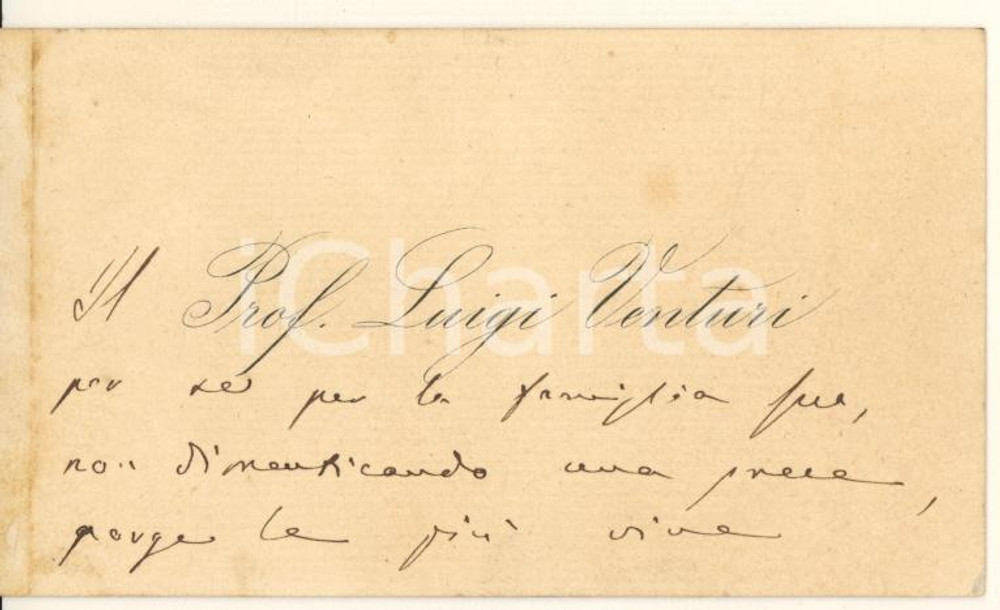 Il Prof. Luigi Venturi
per sè per la famiglia sua,
non dimenticando una prece,
porge le più vive
iCharta